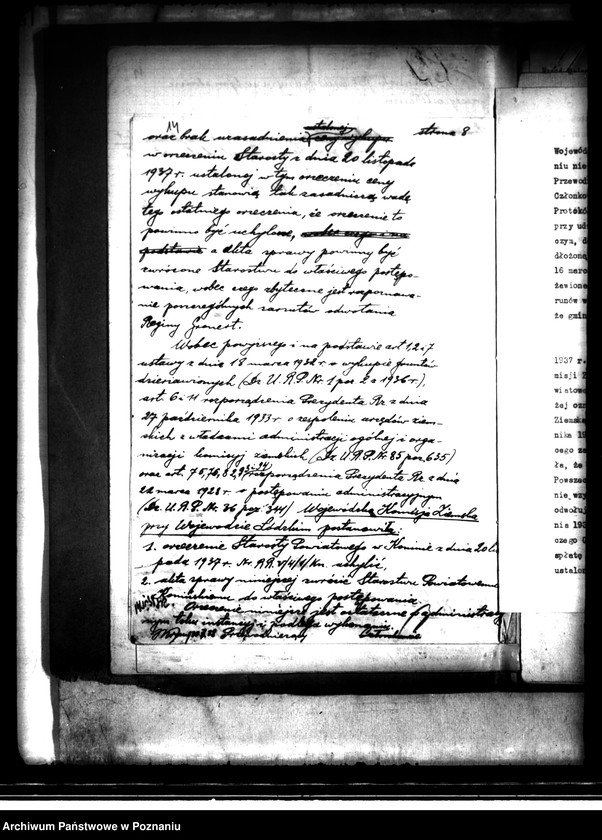 14
strona 8
oraz brak uzasadnienia
w orzeczeniu Starosty z dnia 20 listopada
1937 r. ustalonej w tym orzeczeniu ceny
wykupu stanowią tak zasadniczą wadę
tego ostatniego orzeczenia, że orzeczenie to
powinno być uchylone,
podstawie a akta sprawy powinny być
zwrócone Starostwu do właściwego postępo-
wania, wobec czego zbyteczne jest rozpoznawa-
nie poszczególnych zarzutów odwołania
Reginy
Wobec powyższego i na podstawie art 1, 2 i 7
ustawy z dnia 18 marca 1932 r. o wykupie gruntów
dzierżawionych (Dz. U. R. P. Nr. 1 poz. 2 z 1936 r.),
art. 6 i 11 rozporządzenia Prezydenta Rz. z dnia
27 października 1933 r. o zespoleniu urzędów ziem-
skich z władzami administracji ogólnej i orga-
nizacji komisyj ziemskich (Dz. U. R. P. Nr. 85 poz. 635)
oraz art. 75, 76, 82, 93 i 94 rozporządzenia Prezydenta Rz. z dnia
22 marca 1928 r. o postępowaniu administracyjnym
(Dz. U. R. P. Nr. 36 poz. 341) Wojewódzka Komisja Ziemska
przy Wojewodzie Łódzkim postanowiła:
1. orzeczenie Starosty Powiatowego w Koninie z dnia 20 listo-
pada 1937 r. Nr. uchylić,
2. akta sprawy niniejszej zwrócić Starostwu Powiatowemu
Konińskiemu do właściwego postępowania.
Orzeczenie niniejsze jest ostateczne w administracyj-
nym toku instancji i podlega wykonaniu.
Przewodniczący Członkowie
Wojewód
niu nie
Przewod
Członko
Protokó
przy ud
czym, d
dłożoną
16 marc
żawione
runów w
że gmin
1937 r.
misji Z
wiatowe
żej ozn
Ziemska
nika 19
cego ze
ła, że
Powszec
nie, wzy
odwołuj
nia 193
czego O
spłatę
ustalon
Archiwum Państwowe w Poznaniu